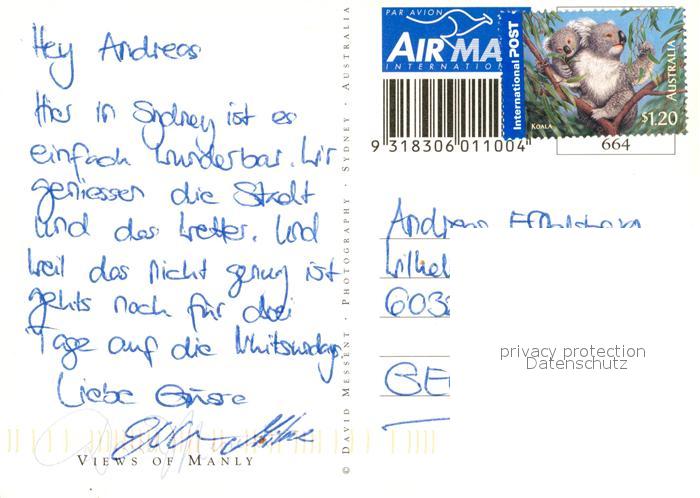 Hey Andreas
Hier in Sydney ist es
einfach wunderbar. Wir
geniessen die Stadt
und das Wetter. Und
weil das nicht genug ist
gehts noch für drei
Tage auf die Whitsunday
Liebe Grüsse
VIEWS OF MANLY
© DAVID MESSENT · PHOTOGRAPHY · SYDNEY · AUSTRALIA
PAR AVION
AIR MA
INTERNATION
International POST
KOALA
AUSTRALIA
$1.20
9 318306 011004
664
Andreas
privacy protection
Datenschutz